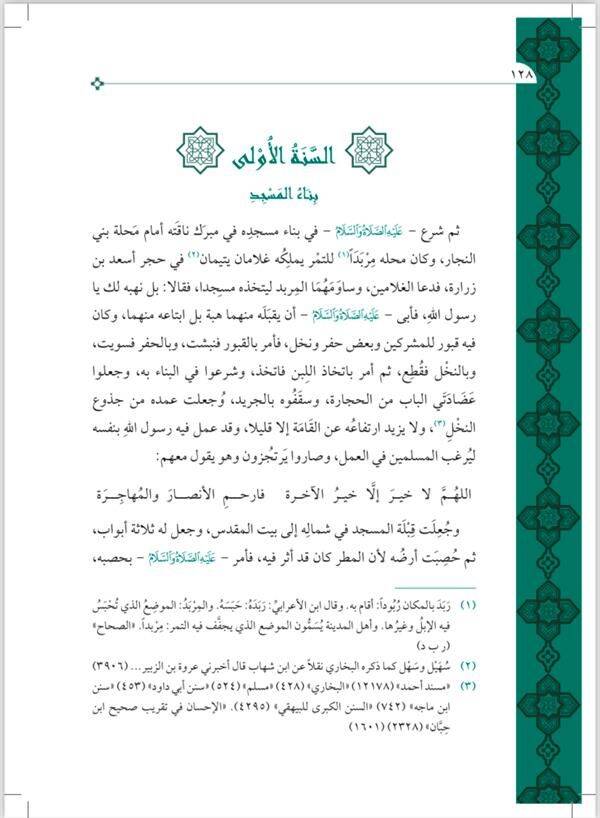 ١٢٨
السَّنَةُ الأُوْلى
بِنَاءُ المَسْجِدِ
ثم شرع – عَلَيْهِ الصَّلَاةُ وَالسَّلَامُ – في بناء مسجدِه في مبرَك ناقَته أمام مَحلة بني
النجار، وكان محله مِرْبَدَاً(١) للتمْر يملِكُه غلامان يتيمان(٢) في حجر أسعد بن
زرارة، فدعا الغلامين، وساوَمَهُمَا المِربد ليتخذه مسجِدا، فقالا: بل نهبه لك يا
رسول اللهِ، فأبى – عَلَيْهِ الصَّلَاةُ وَالسَّلَامُ – أن يقبَلَه منهما هبة بل ابتاعه منهما، وكان
فيه قبور للمشركين وبعض حفر ونخل، فأمر بالقبور فنبشت، وبالحفر فسويت،
وبالنخْل فقُطِع، ثم أمر باتخاذ اللِبن فاتخذ، وشرعوا في البناء به، وجعلوا
عَضَادَتَي الباب من الحجارة، وسقَفُوه بالجريد، وُجعلت عمده من جذوع
النخْلِ(٣)، ولا يزيد ارتفاعُه عن القَامَة إلا قليلا، وقد عمل فيه رسول اللهِ بنفسه
ليُرغب المسلمين في العمل، وصاروا يَرتجُزون وهو يقول معهم:
اللهُمَّ لا خيرَ إلَّا خيرُ الآخـرة فارحـمِ الأنصـارَ والمُهاجِـرَة
وجُعِلَت قِبْلَة المسجد في شمالِه إلى بيت المقدس، وجعل له ثلاثة أبواب،
ثم حُصِبَت أرضُه لأن المطر كان قد أثر فيه، فأمر – عَلَيْهِ الصَّلَاةُ وَالسَّلَامُ – بحصبه،
(١) رَبَدَ بالمكان رُبُوداً: أقام به. وقال ابن الأعرابيِّ: رَبَدَهُ: حَبَسَهُ. والمِرْبَدُ: الموضِعُ الذي تُحْبَسُ
فيه الإبلُ وغيرُها. وأهل المدينة يُسَمُّون الموضع الذي يجفَّف فيه التمر: مِرْبداً. «الصحاح»
(ر ب د)
(٢) سُهَيْل وسَهْل كما ذكره البخاري نقلاً عن ابن شهاب قال أخبرني عروة بن الزبير... (٣٩٠٦)
(٣) «مسند أحمد» (١٢١٧٨) «البخاري» (٤٢٨) «مسلم» (٥٢٤) «سنن أبي داود» (٤٥٣) «سنن
ابن ماجه» (٧٤٢) «السنن الكبرى للبيهقي» (٤٢٩٥). «الإحسان في تقريب صحيح ابن
حِبَّان» (٢٣٢٨) (١٦٠١)